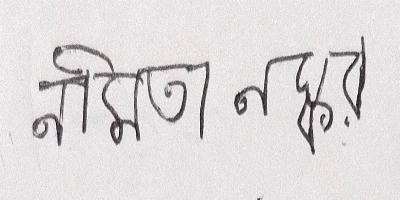 নমিতা নস্কর